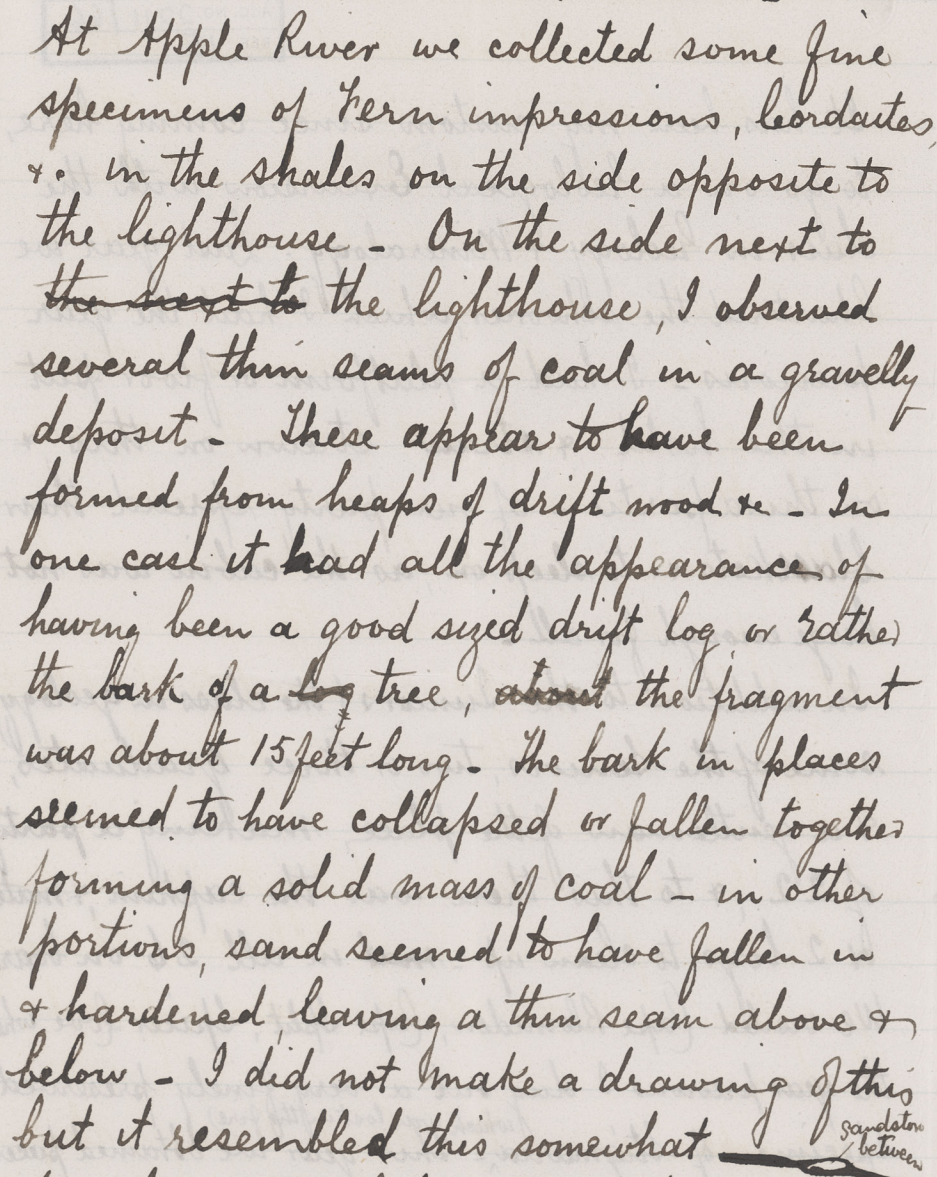 At Apple River we collected some fine
specimens of Fern impressions, Cordaites,
&. in the shales on the side opposite to
the lighthouse - On the side next to
the next to the lighthouse, I observed
several thin seams of coal in a gravelly
deposit - These appear to have been
formed from heaps of drift wood &c - In
one case it had all the appearance of
having been a good sized drift log, or rather
the bark of a log tree, about the fragment
was about 15 feet long - The bark in places
seemed to have collapsed or fallen together
forming a solid mass of coal - in other
portions, sand seemed to have fallen in
& hardened, leaving a thin seam above &
below - I did not make a drawing of this
but it resembled this somewhat
sandstone
between